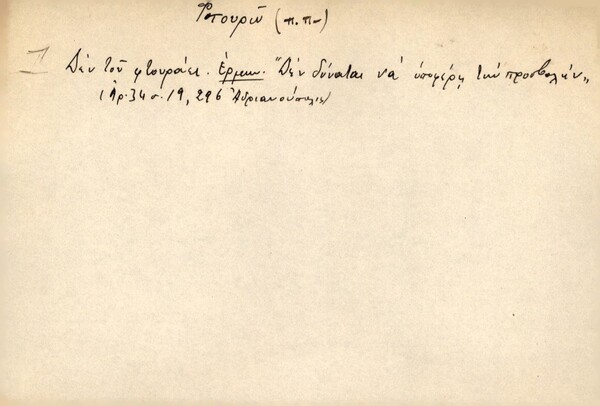 Φτουρῶ (π.π.-)
1 Δέν τοῦ φτουράει. Ἑρμην. "Δέν δύναται νά ὑποφέρῃ τήν προσβολήν„
(Ἀρ. 34 σ. 19, 296 Ἀδριανούπολις)